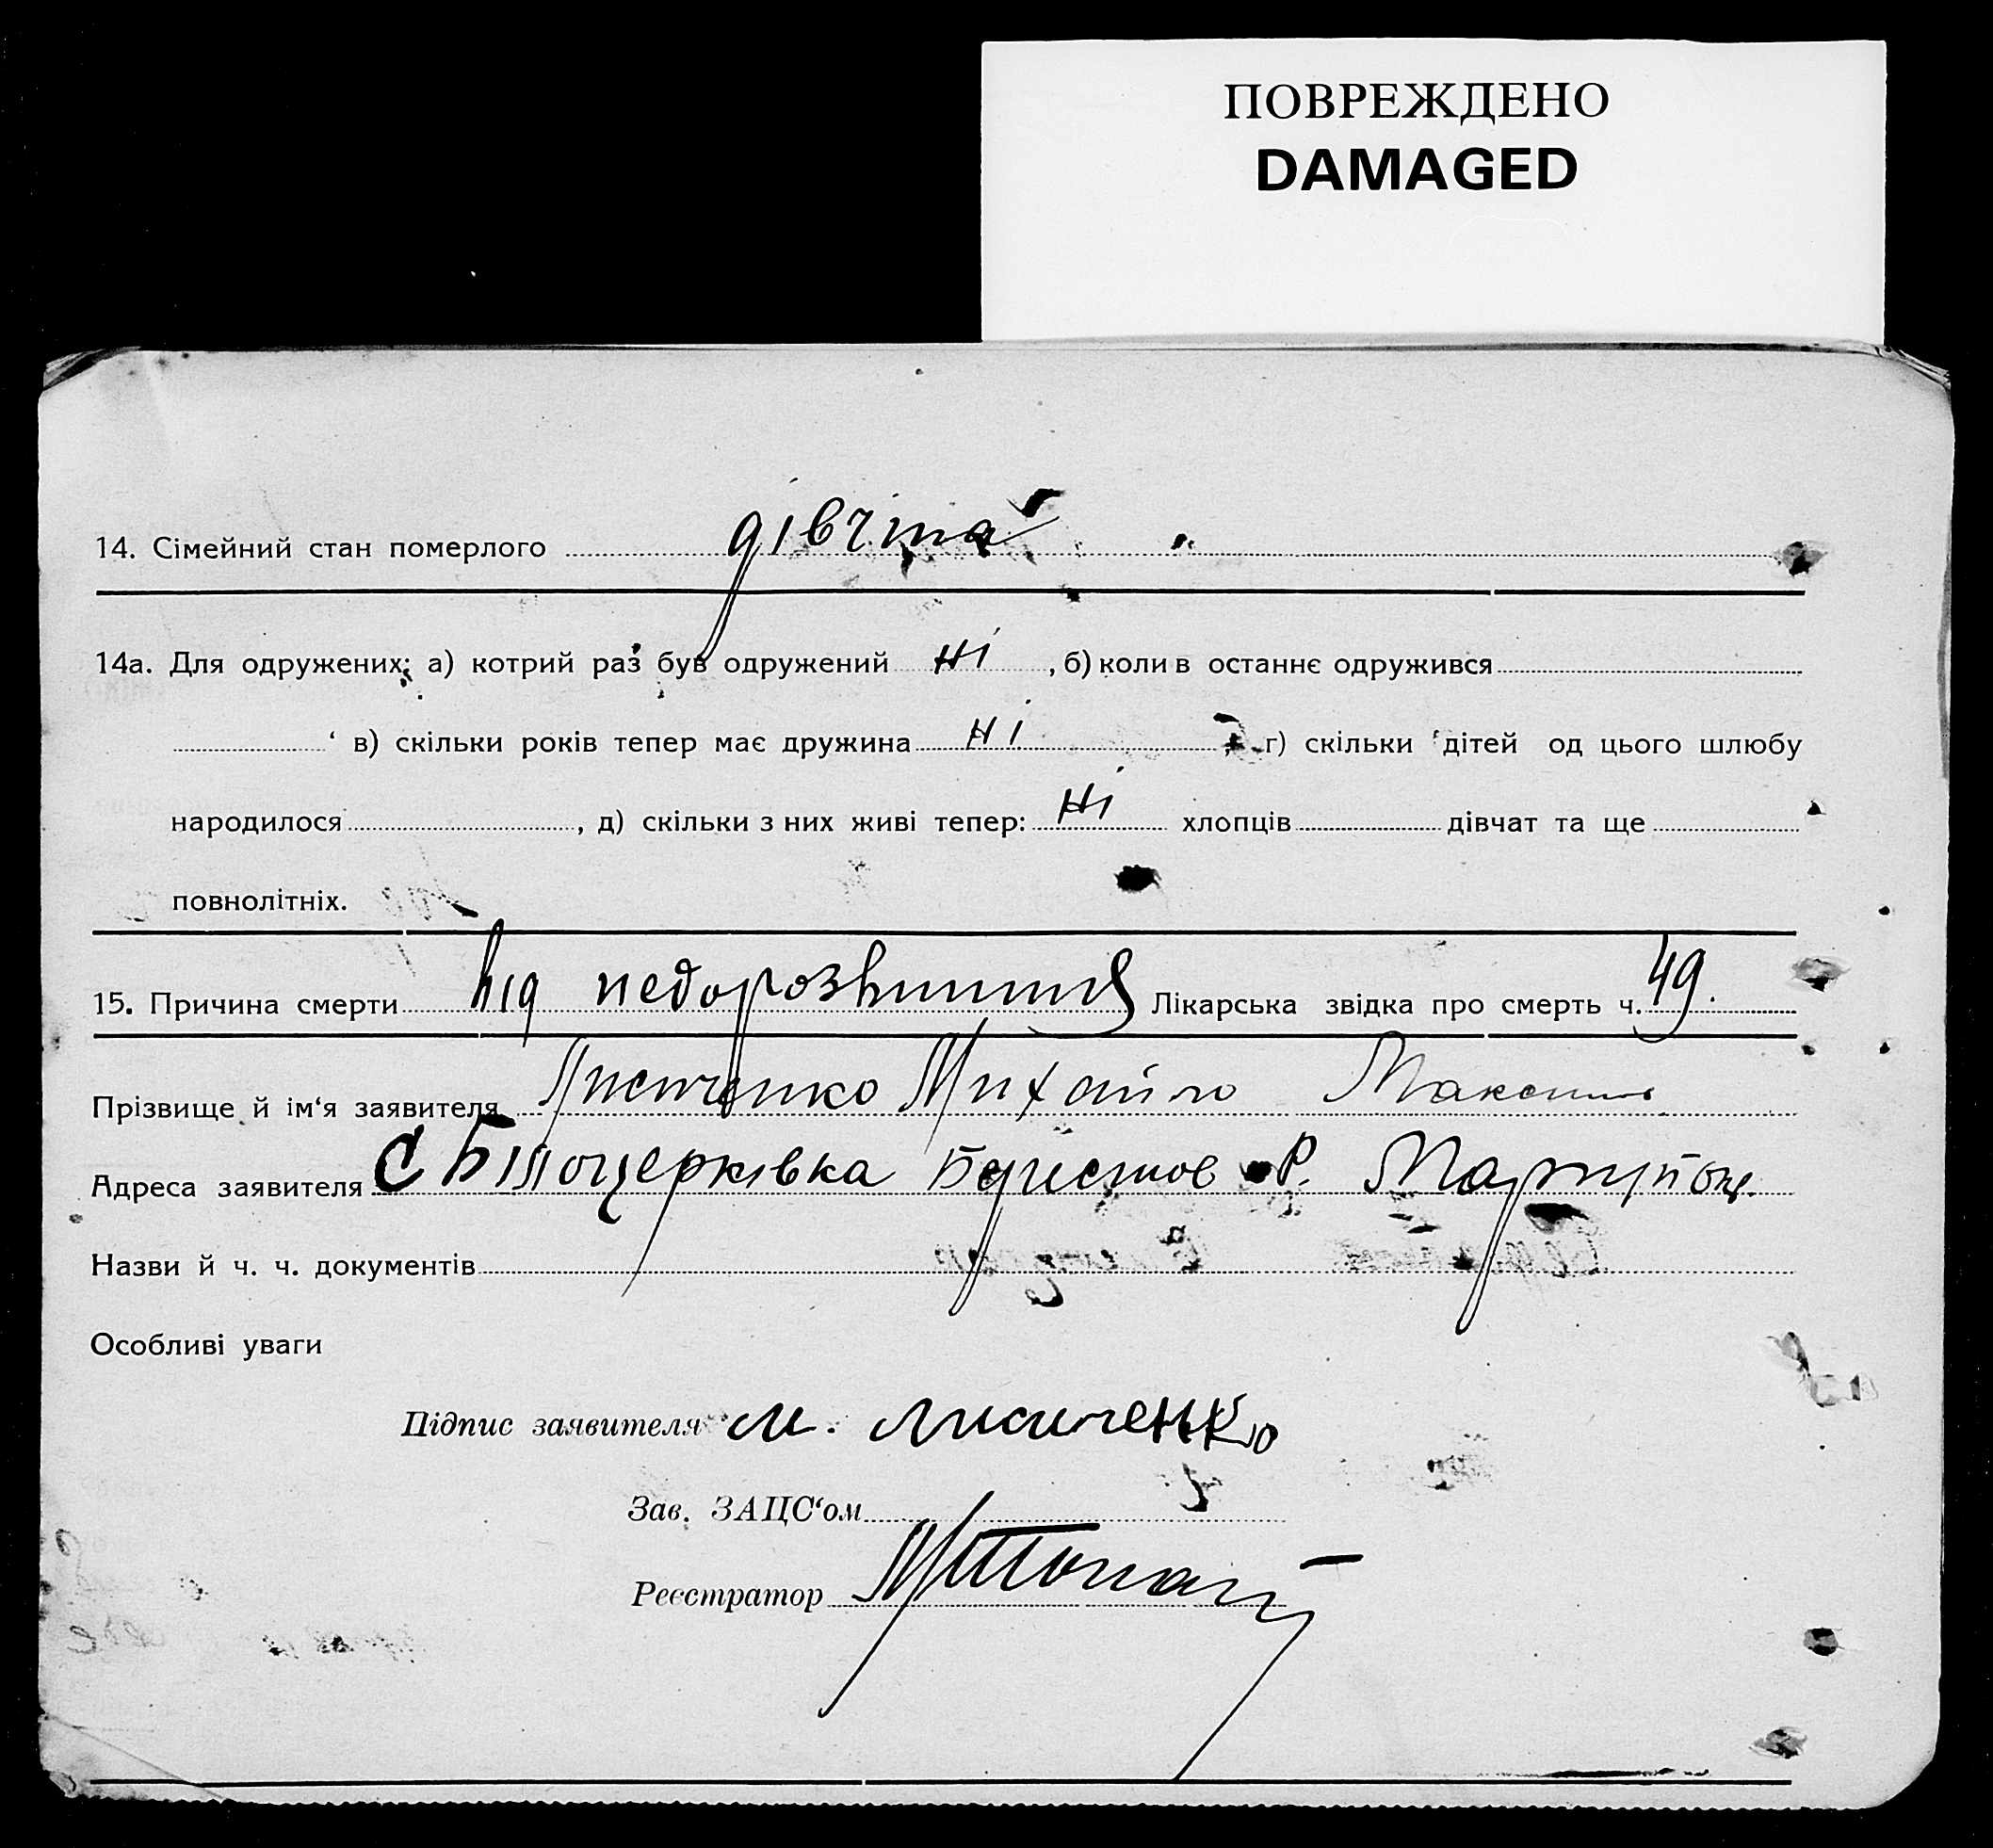 ПОВРЕЖДЕНО
DAMAGED
14. Сімейний стан померлого дівчина
14а. Для одружених: а) котрий раз був одружений Ні , б) коли в останнє одружився
в) скільки років тепер має дружина Ні г) скільки дітей од цього шлюбу
народилося , д) скільки з них живі тепер: Ні хлопців дівчат та ще
повнолітніх.
15. Причина смерти Від недорозвиття Лікарська звідка про смерть ч. 49.
Прізвище й ім‘я заявителя Лисиченко Михайло Максим
Адреса заявителя С Білоцерківка Берестов Р.
Назви й ч. ч. документів
Особливі уваги
Підпис заявителя М. Лисиченко
Зав. ЗАЦС‘ом
Реєстратор